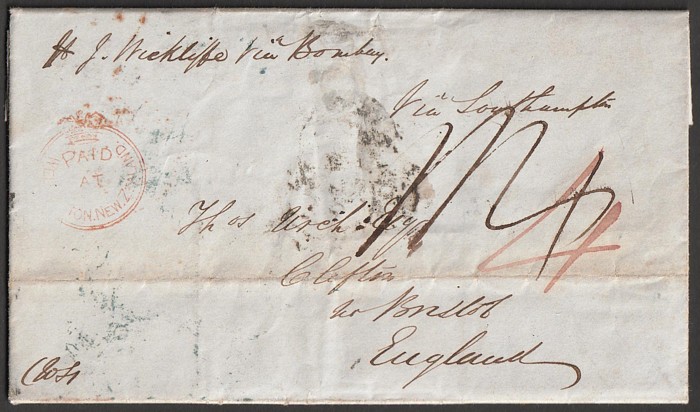 J. Wickliffe Via Bombay.
Via Southampton
PAID
AT
TON. NEW. Z AND
4
Thos Arch
Clifton
nr Bristol
England